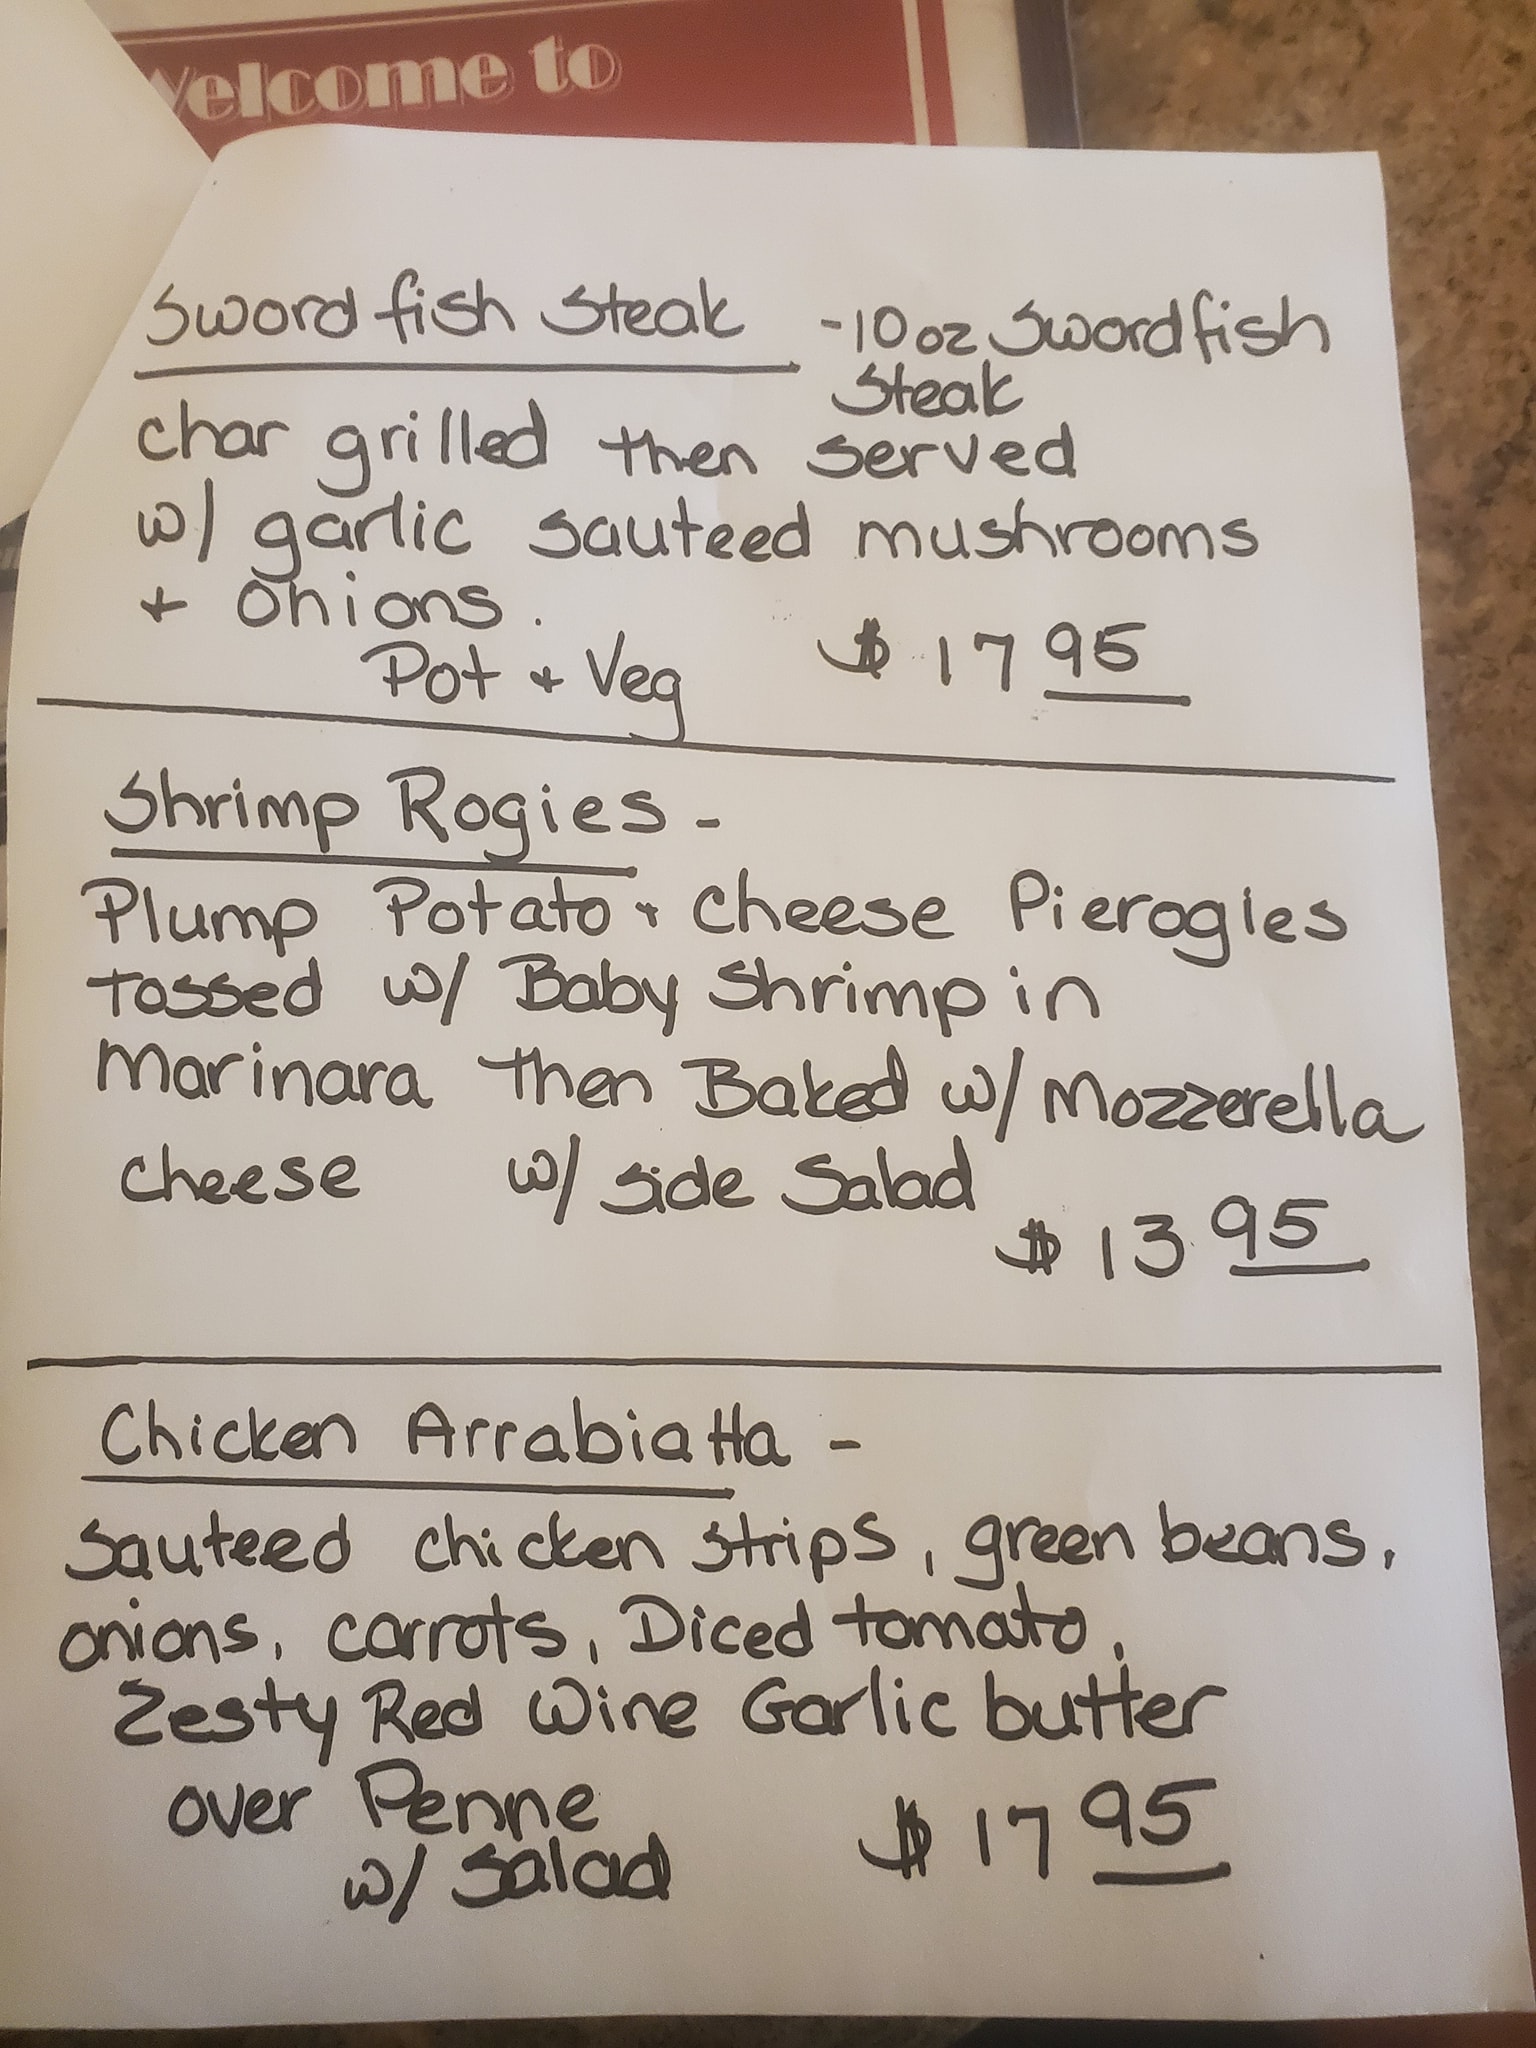 Welcome to
Swordfish Steak -10 oz Swordfish
Steak
char grilled then served
w/ garlic sauteed mushrooms
+ Onions.
Pot + Veg $ 17 95
Shrimp Rogies -
Plump Potato + Cheese Pierogies
tossed w/ Baby Shrimp in
Marinara then Baked w/ Mozzerella
cheese w/ side Salad
$ 13 95
Chicken Arrabiatta -
Sauteed chicken strips, green beans,
onions, carrots, Diced tomato,
Zesty Red Wine Garlic butter
over Penne
w/ Salad $ 17 95